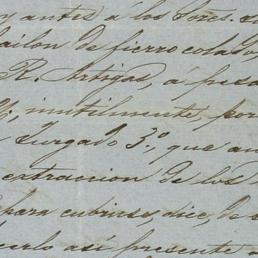 y antes a los Sores.
de fierro colado
R. Artigas, a pesa
inutilmente, por
Juzgado 3º, que an
extraccion de los
para cubrirse, dice, de
cerlo así presente a